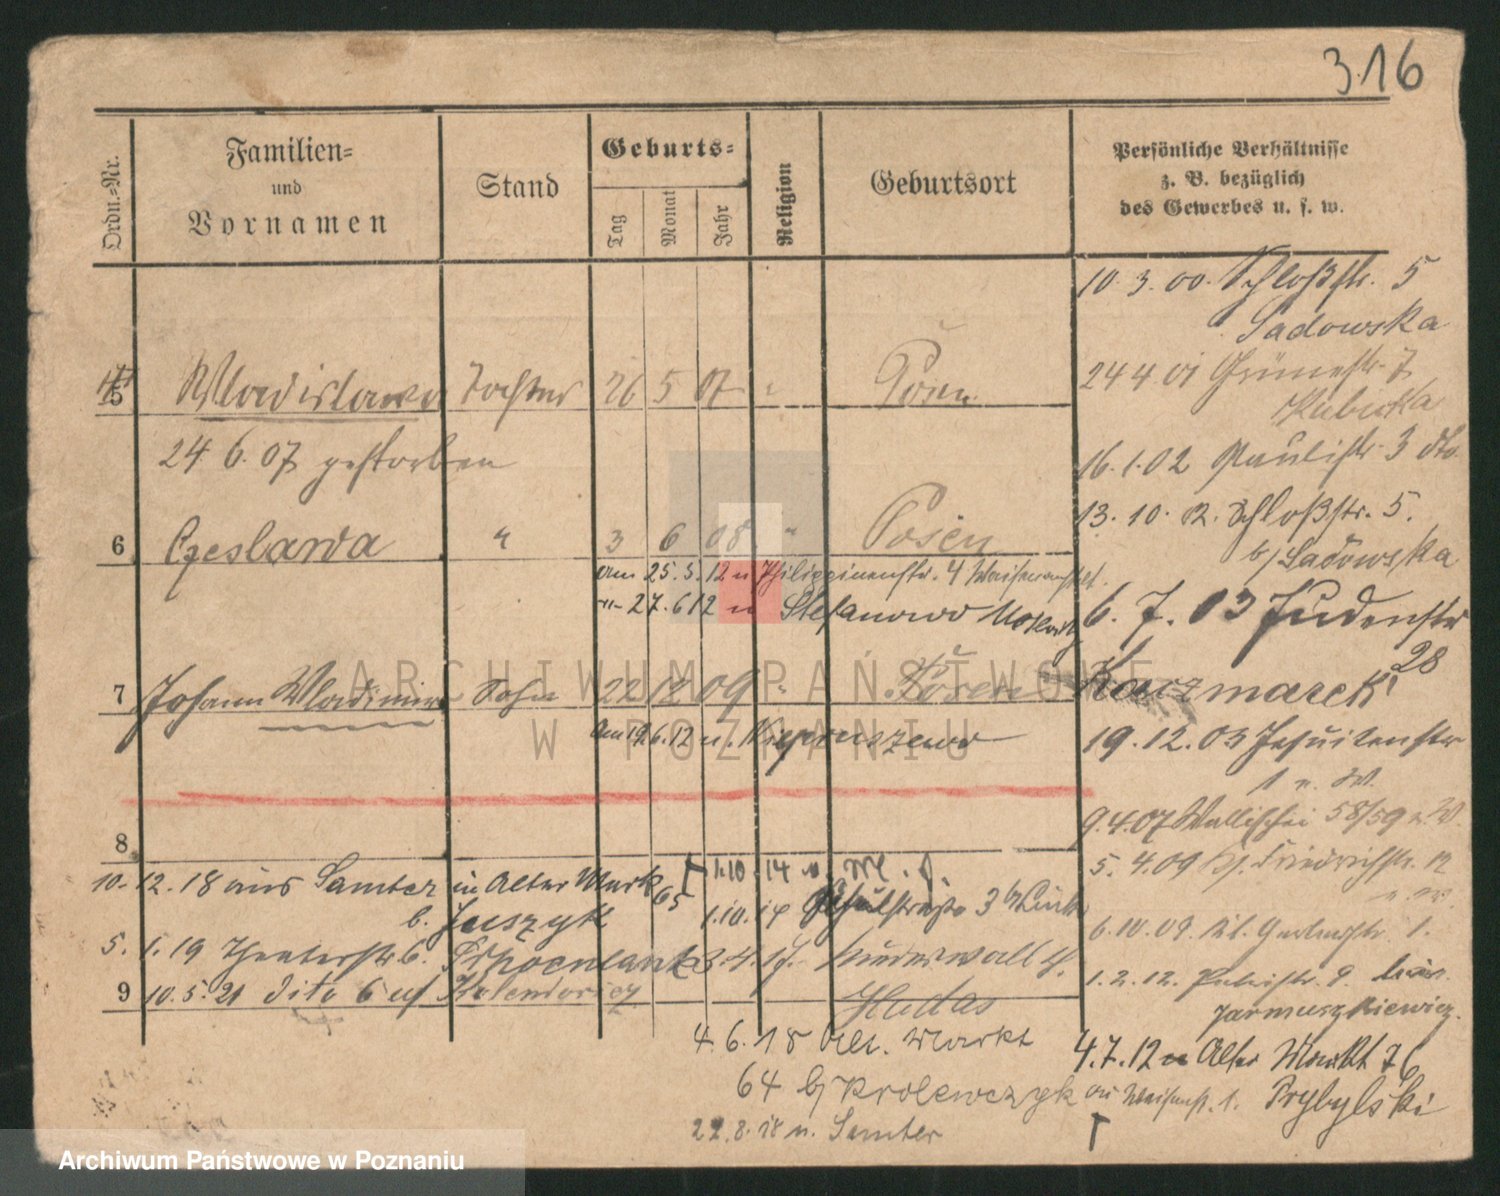 3.16
Ordn.-Nr.
Familien-
und
Vornamen
Stand
Geburts-
Tag
Monat
Jahr
Religion
Geburtsort
Persönliche Verhältnisse
z. B. bezüglich
des Gewerbes u. s. w.
10.3.00. Schloßstr. 5
Sadowska
5 Wladislawa Tochter 26 5 07 " Posen
24.6.07 gestorben
24 4 01 Grünestr. 7
Kubicka
16.1.02 Paulistr. 3 dto.
6 Czeslawa " 3 6 08 " Posen
13.10.02. Schloßstr. 5.
b/ Sadowska
am 25.3.12 n Philippinenstr. 4 Waisenanstalt.
27.6 12 n Stefanowo
6.7.03 Judenstr
28
Kaczmarek
7 Johann Wladimir Sohn 22 12 09 " Posen
am 19.6.12 n.
19.12.03 Jesuitenstr
1 n. W.
9.4.07 Wallischei 58/59 n. W.
8
5.4.09 Friedrichstr. 12
10.12.18 aus Samter in Alter Markt 65
b. Juszyk
1.10.14
1.10.14 Schulstraße 3
6.10.09. Kl. Gerberstr. 1.
5.1.19 Theaterstr 6.
3.4.17.
9 10.5.21 dito 6
Hadas
1.2.12.
Jarmuszkiewicz.
4.6.18 Alt. Markt
64 b/ Krolewczyk
22.8.18 n. Samter
4.7.12 n Alter Markt 76
Przybylski
ARCHIWUM PAŃSTWOWE
W POZNANIU
Archiwum Państwowe w Poznaniu